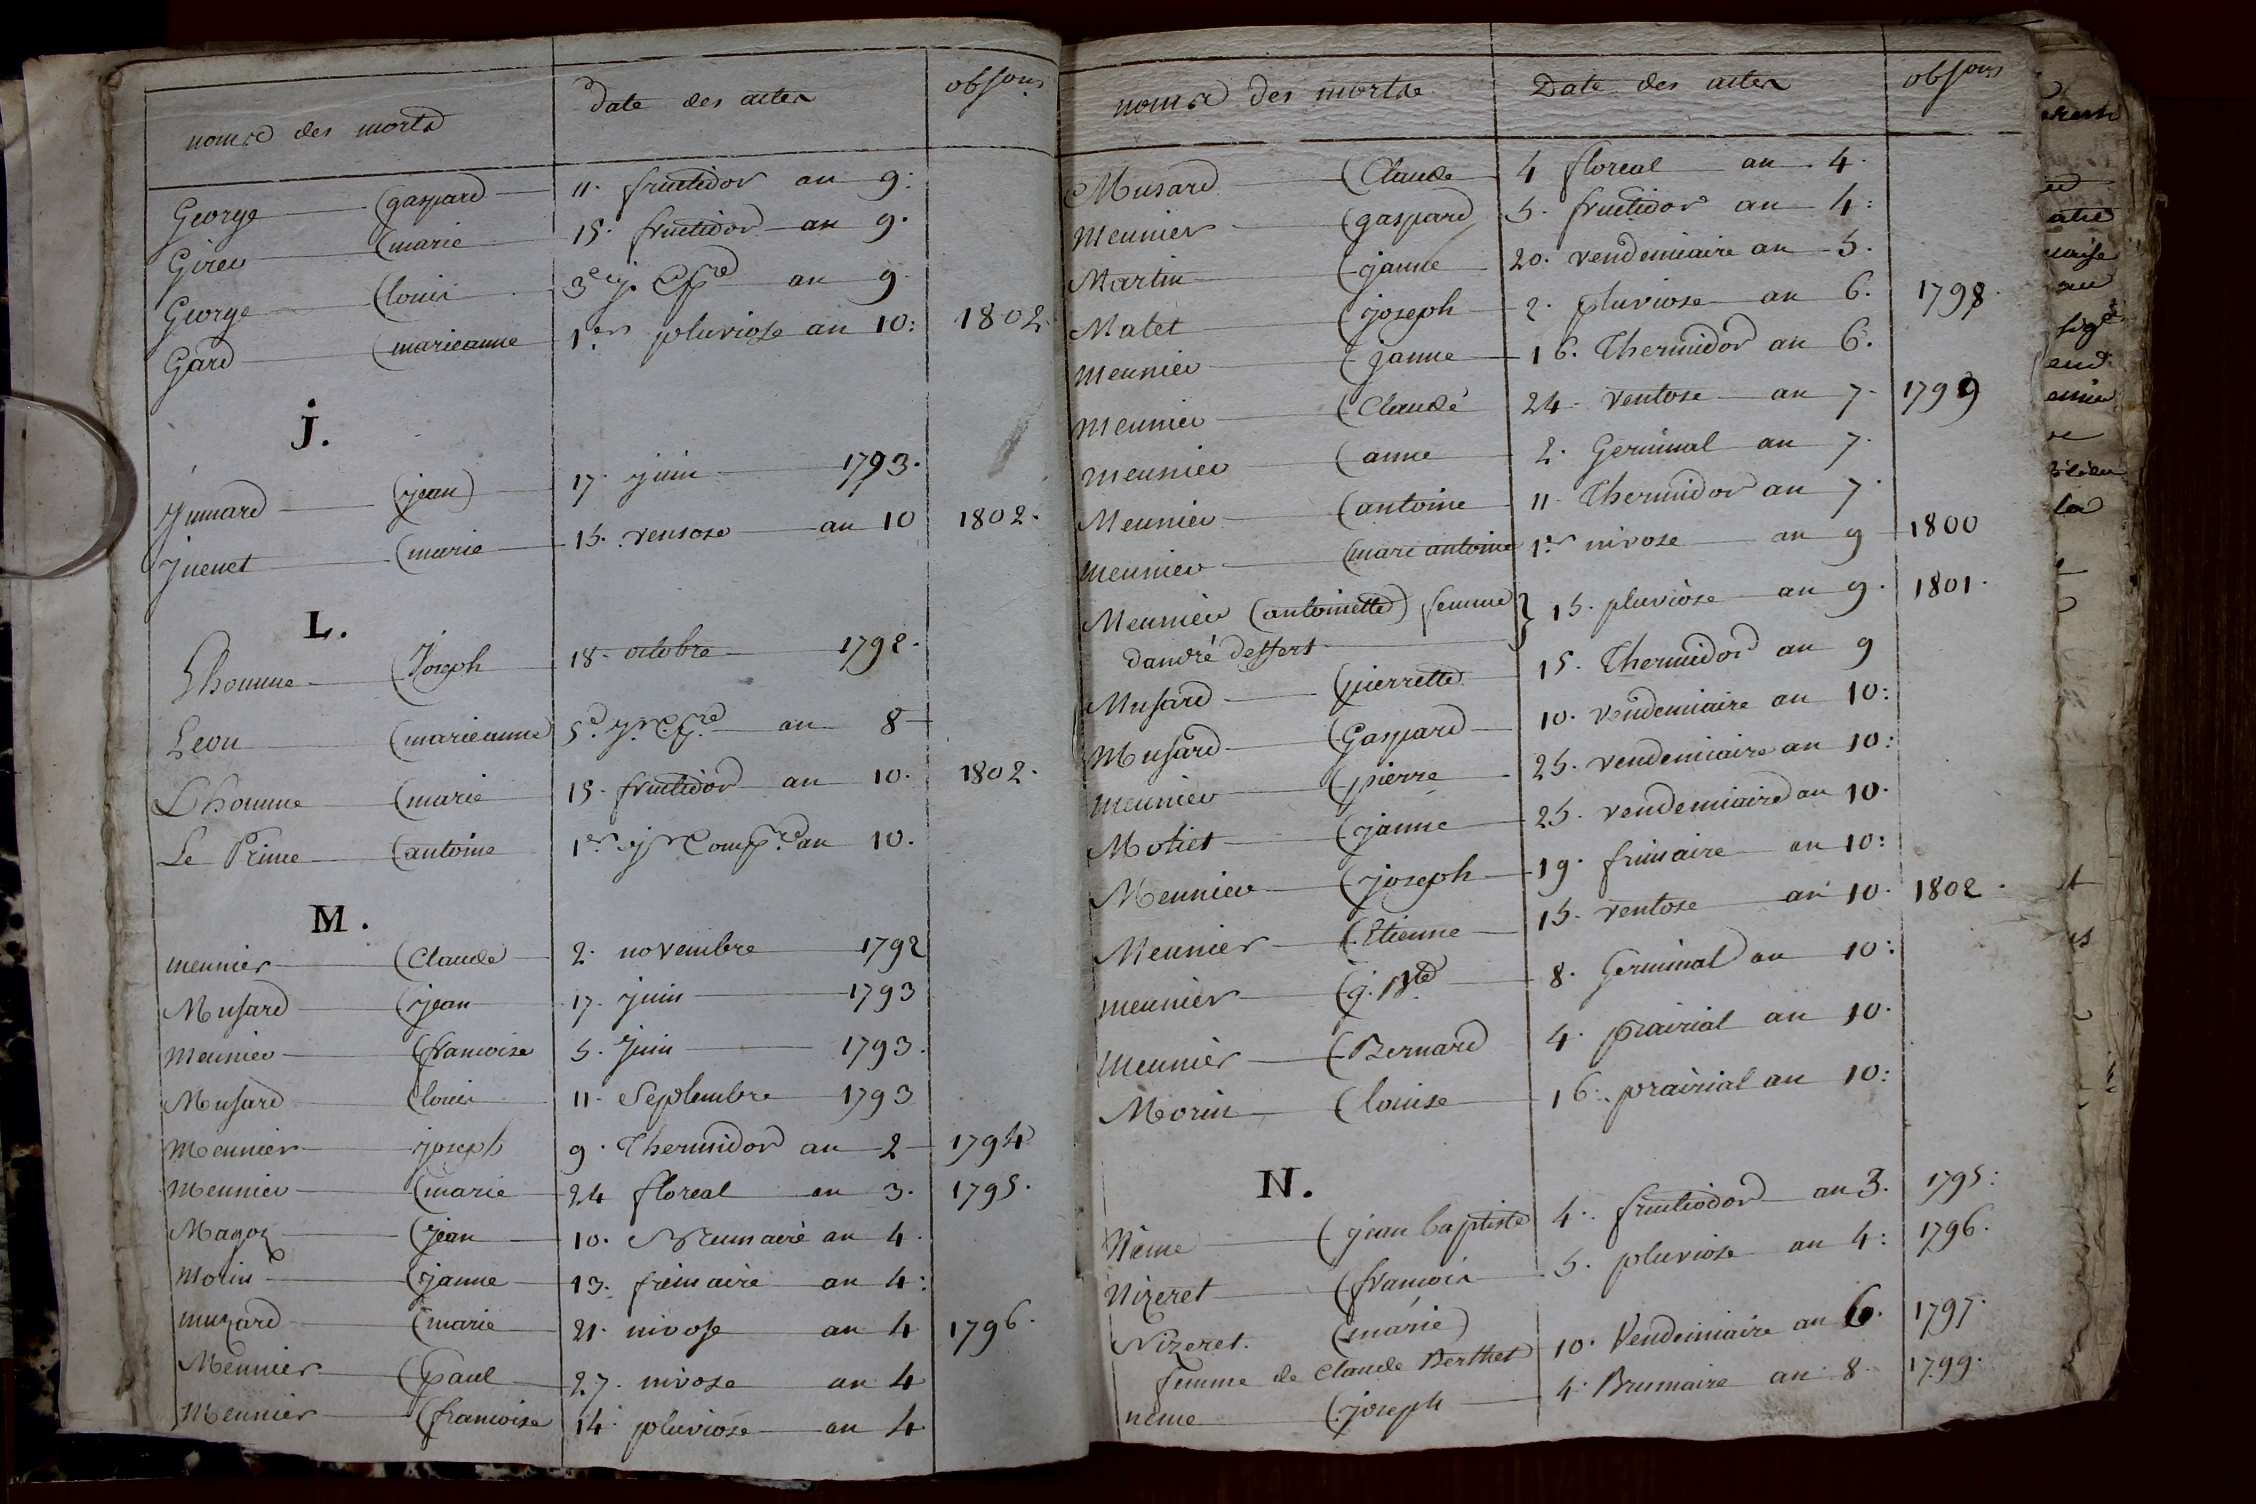 noms des morts date des actes obsons
George (gaspard 11. fructidor an 9.
Girev (marie 15. fructidor an 9.
George (louis 3e j. Cpre an 9
Gard (marieanne 1er pluviose an 10: 1802.
J.
Junnard (jean) 17. juin 1793.
Juenet (marie 15. ventose an 10 1802.
L.
Lhomme (Joseph 18. octobre 1792.
Leon (marieanne 5e jr Cpre an 8
Lhomme (marie 15. fructidor an 10. 1802.
Le Prince (antoine 1er jr Compre an 10.
M.
meunier (Claude 2. novembre 1792
Musard (jean 17. juin 1793
Meunier (francoise 5. Juin 1793.
Musard (louis 11. Septembre 1793
Meunier joseph 9. Thermidor an 2 1794
Meunier (marie 24 floreal an 3. 1795.
Magoz (jean 10. Brumaire an 4.
Morin (janne 13. frimaire an 4:
muzard (marie 21. nivose an 4 1796.
Meunier (paul 27. nivose an 4
Meunier (francoise 14. pluviose an 4
noms des morts Date des actes obsons
Musard (Claude 4 floreal an 4.
Meunier (gaspard 5. fructidor an 4:
Martin (janne 20. vendemiaire an 5.
Matet (joseph 2. pluviose an 6. 1798.
Meunier (janne 16. Thermidor an 6.
Meunier (Claude 24. ventose an 7. 1799
Meunier (anne 2. Germinal an 7.
Meunier (antoine 11. Thermidor an 7.
Meunier (marc antoine 1er nivose an 9 1800
Meunier (antoinette) femme } 15. pluviose an 9. 1801.
dandré dessert
Musard (pierrette 15. Thermidor an 9
Musard (Gaspard 10. vendemiaire an 10:
meunier (pierre 25. vendemiaire an 10:
Motiet (janne 25. vendemiaire an 10.
Meunier (joseph 19. frimaire an 10:
Meunier (Etienne 15. ventose an 10. 1802.
meunier (j. Bte 8. Germinal an 10:
Meunier (Bernard 4. prairial an 10.
Morin (louise 16. prairial an 10:
N.
Nême (jean baptiste 4. fructiodor an 3. 1795:
Nizeret (francois 5. pluviose an 4: 1796.
Nizeret. (marie)
femme de Claude Berthet 10. Vendemiaire an 6. 1797.
neme (joseph 4. Brumaire an 8. 1799.